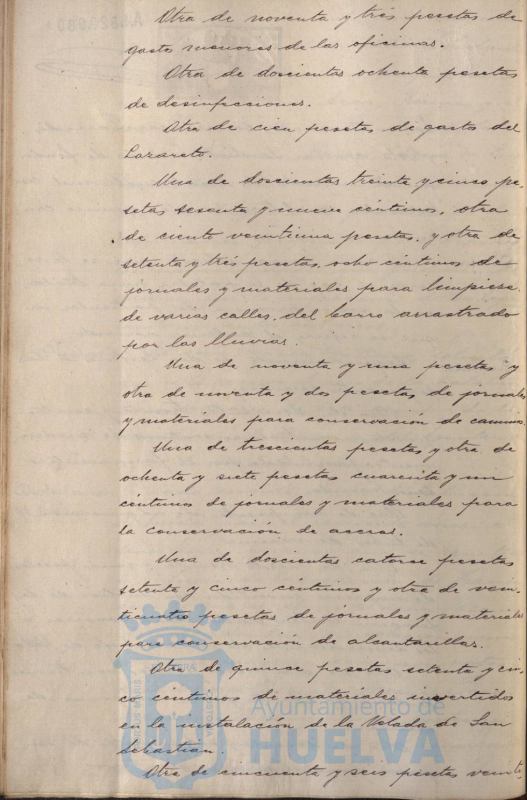 Otra de noventa y tres pesetas de
gastos menores de las oficinas.
Otra de doscientas ochenta pesetas
de desinfecciones.
Otra de cien pesetas de gasto del
Lazareto.
Una de doscientas treinta y cinco pe-
setas sesenta y nueve céntimos, otra
de ciento veintiuna pesetas, y otra de
setenta y tres pesetas, ocho céntimos de
jornales y materiales para limpieza
de varias calles, del barro arrastrado
por las lluvias.
Una de noventa y una pesetas y
otra de noventa y dos pesetas de jornales
y materiales para conservación de caminos.
Una de trescientas pesetas y otra de
ochenta y siete pesetas cuarenta y un
céntimos de jornales y materiales para
la conservación de aceras.
Una de doscientas catorce pesetas
setenta y cinco céntimos y otra de vein-
ticuatro pesetas de jornales y materiales
para conservación de alcantarillas.
Otra de quince pesetas setenta y cin-
co céntimos de materiales invertidos
en la instalación de la Velada de San
Sebastian.
Otra de cincuenta y seis pesetas veinte
Ayuntamiento de
HUELVA